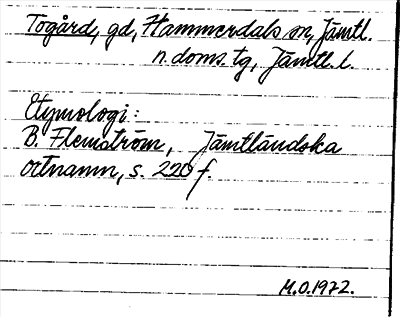 Togård, gd, Hammerdals sn, Jämtl.
n. doms. tg, Jämtl. l.
Etymologi:
B. Flemström, Jämtländska
ortnamn, s. 220 f.
M.O.1972.